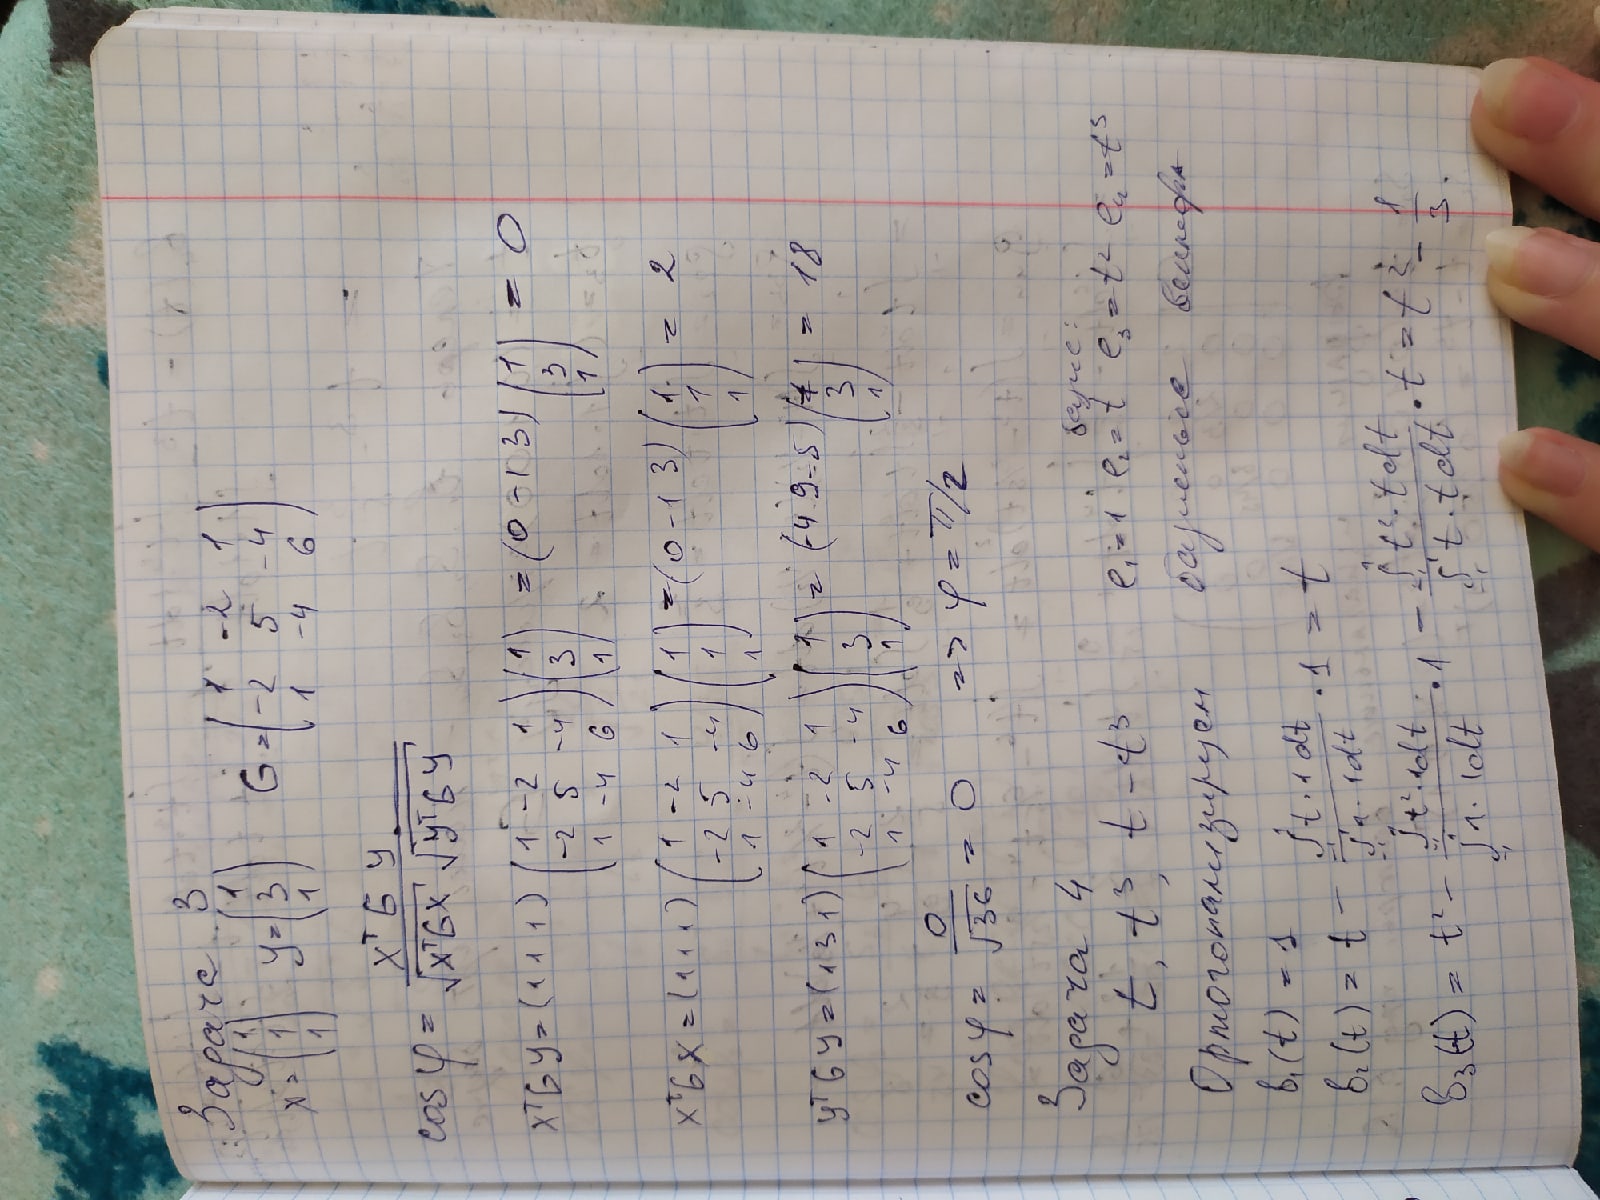 Задача 3
x = (1 1 1) y = (1 3 1) G = (1 -2 1 -2 5 -4 1 -4 6)
cos φ = xᵀ G y / √xᵀGx √yᵀGy
xᵀGy = (1 1 1) (1 -2 1 -2 5 -4 1 -4 6) (1 3 1) = (0 -1 3) (1 3 1) = 0
xᵀGx = (1 1 1) (1 -2 1 -2 5 -4 1 -4 6) (1 1 1) = (0 -1 3) (1 1 1) = 2
yᵀGy = (1 3 1) (1 -2 1 -2 5 -4 1 -4 6) (1 3 1) = (-4 9 -5) (1 3 1) = 18
cos φ = 0 / √36 = 0 => φ = π/2
Задача 4
базис:
t, t³, t - t³ e₁=1 e₂=t e₃=t² e₄=t³
Ортогонализируем базисные вектора
b₁(t) = 1
b₂(t) = t - ∫₋₁¹ t·1dt / ∫₋₁¹ 1·1dt · 1 = t
b₃(t) = t² - ∫₋₁¹ t²·1dt / ∫₋₁¹ 1·1dt · 1 - ∫₋₁¹ t²·tdt / ∫₋₁¹ t·tdt · t = t² - 1/3.